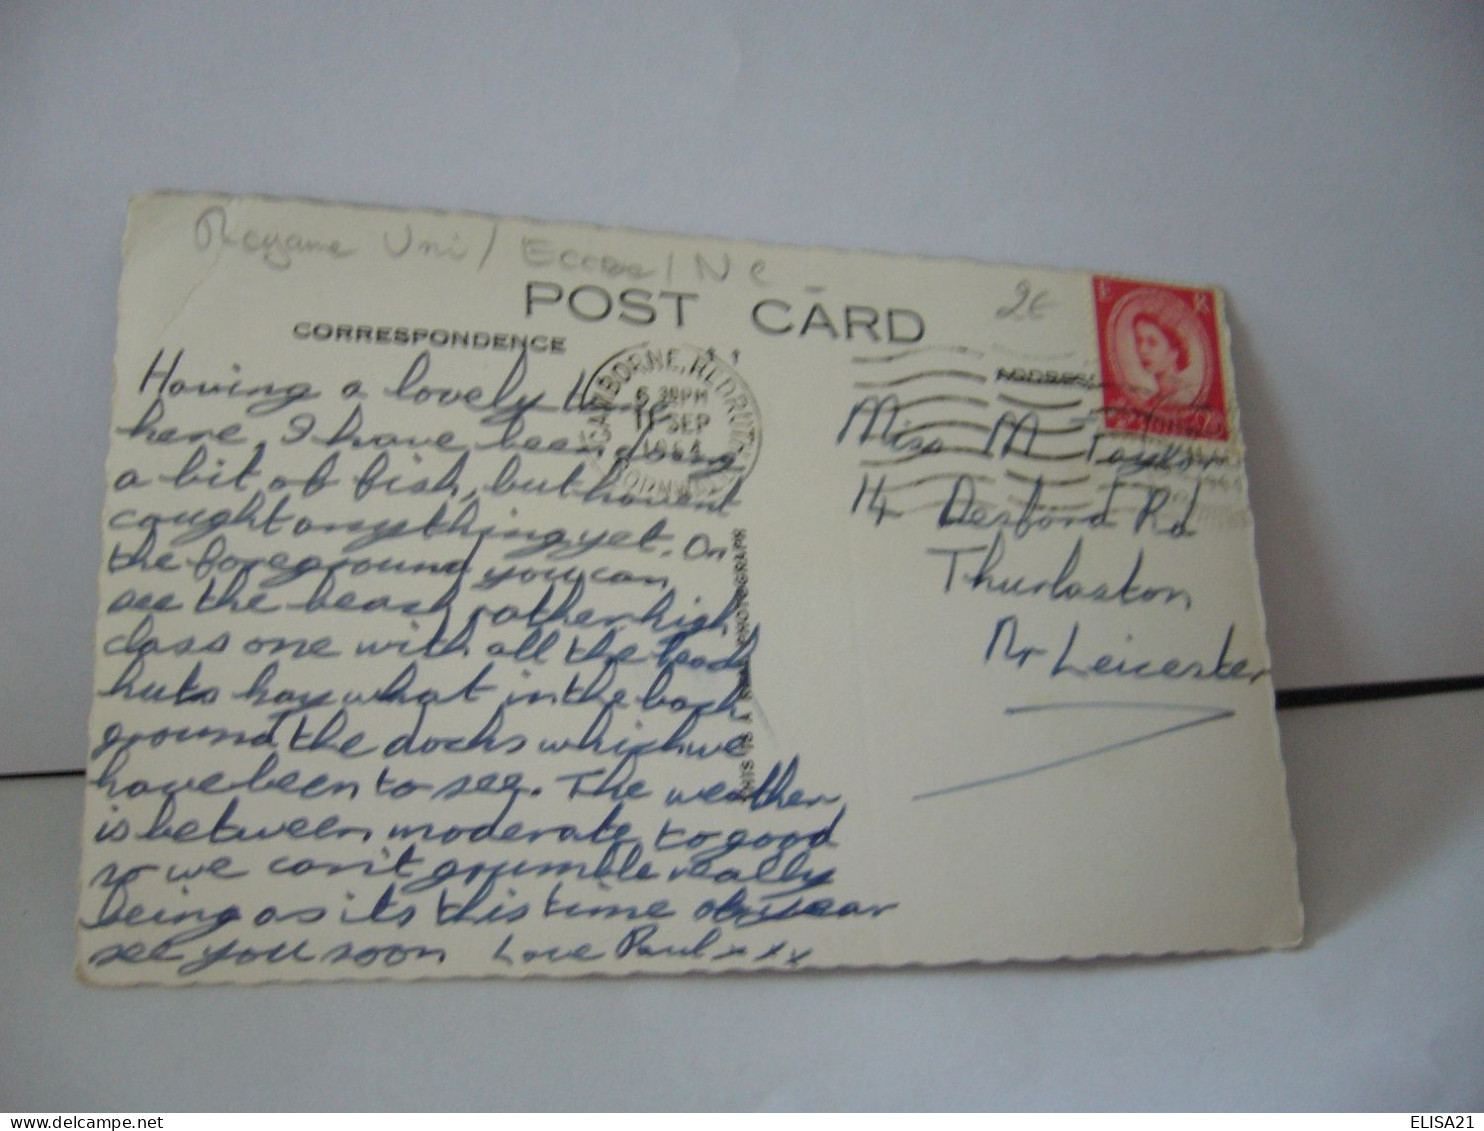 Royaume Uni / Ecosse / N C
2€
POST CARD
CORRESPONDENCE
ADDRESS
CAMBORNE, REDRUTH
6 30 PM
11 SEP
1964
CORNWALL
Having a lovely time
here, I have been doing
a bit of fish, but havent
caught anything yet. On
the foreground you can
see the beach rather high
class one with all the beach
huts hay what in the back
ground the docks which we
have been to see. The weather,
is between moderate to good
so we can't grumble really
being as its this time of year
see you soon Love Paul x x x
THIS IS A REAL PHOTOGRAPH
Miss M Taylor
14 Desford Rd
Thurlaston
Nr Leicester
ELISA21